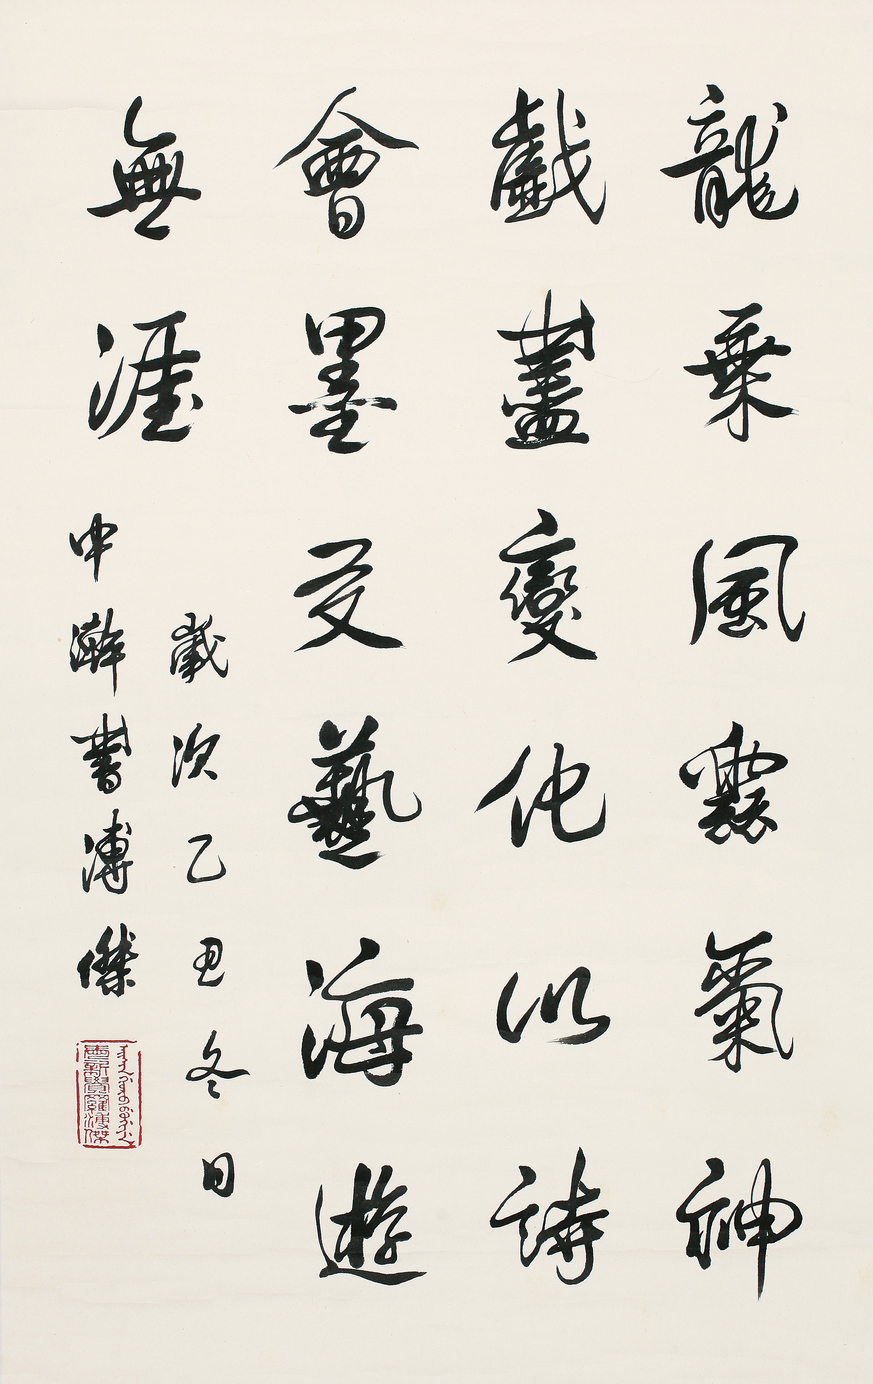 龍乘風雲氣神
戲盡變化以詩
會墨友藝海遊
無涯
歲次乙丑冬日
中澣書溥傑
愛新覺羅溥傑